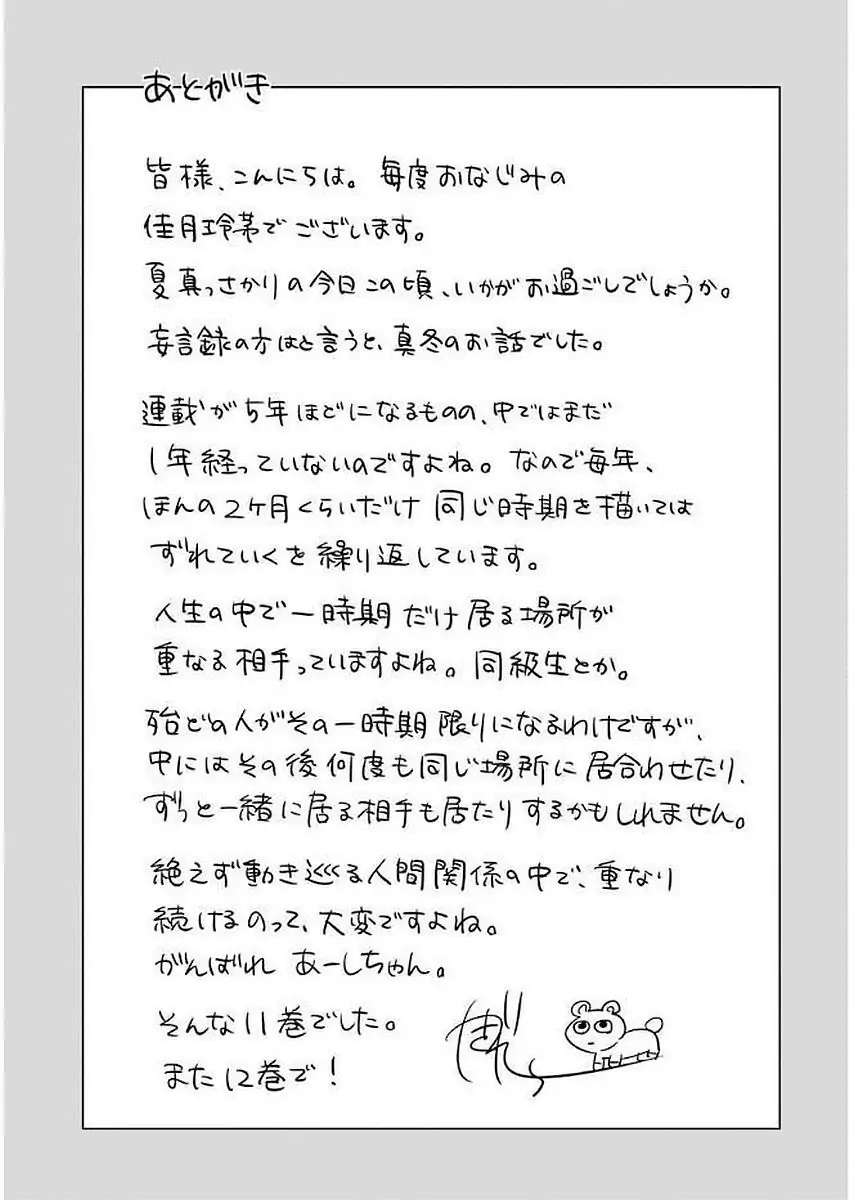 あとがき
皆様、こんにちは。毎度おなじみの
佳月玲茅でございます。
夏真っさかりの今日この頃、いかがお過ごしでしょうか。
妄言録の方はと言うと、真冬のお話でした。
連載が5年ほどになるものの、中ではまだ
1年経っていないのですよね。なので毎年、
ほんの2ヶ月くらいだけ同じ時期を描いては
ずれていくを繰り返しています。
人生の中で一時期だけ居る場所が
重なる相手っていますよね。同級生とか。
殆どの人がその一時期限りになるわけですが、
中にはその後何度も同じ場所に居合わせたり、
ずっと一緒に居る相手も居たりするかもしれません。
絶えず動き巡る人間関係の中で、重なり
続けるのって、大変ですよね。
がんばれ あーしちゃん。
そんな11巻でした。
また12巻で！